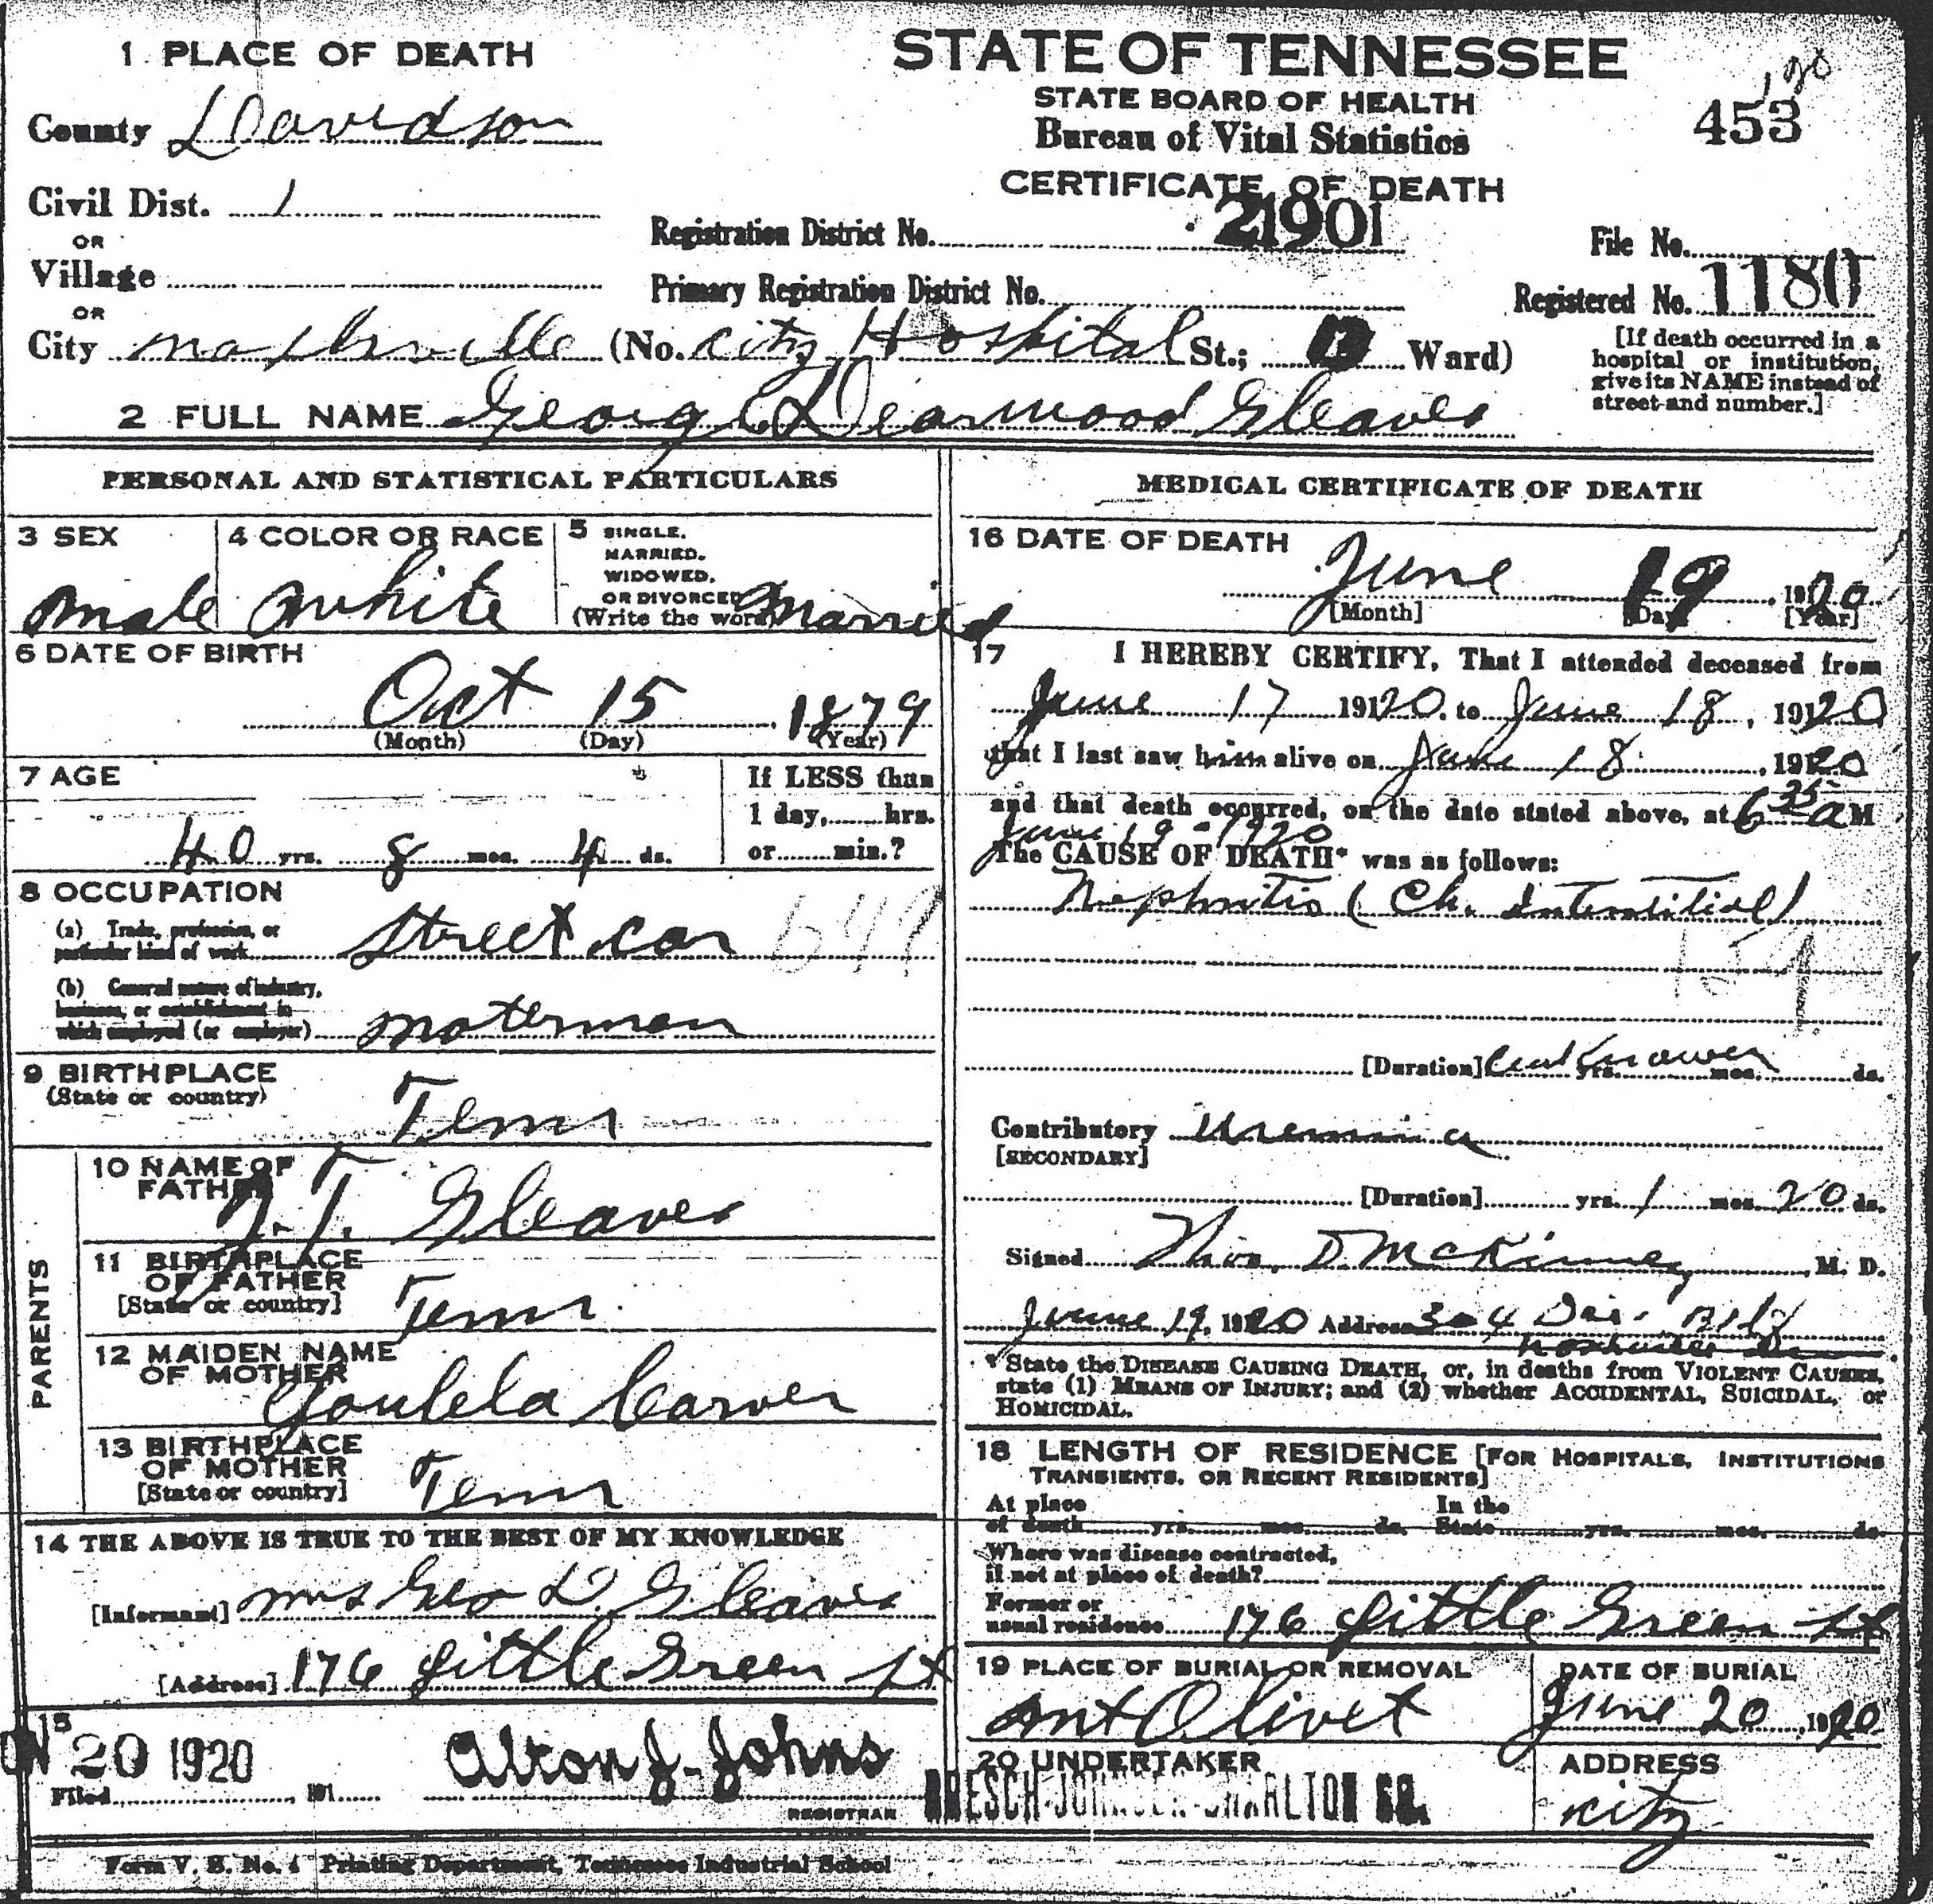 1 PLACE OF DEATH
County Davidson
Civil Dist. 1
OR
Village
OR
City Nashville (No. City Hospital St.; Ward)
STATE OF TENNESSEE
STATE BOARD OF HEALTH
Bureau of Vital Statistics
CERTIFICATE OF DEATH
453
Registration District No. 21901
File No.
Primary Registration District No.
Registered No. 1180
[If death occurred in a
hospital or institution,
give its NAME instead of
street and number.]
2 FULL NAME George Dearwood Gleaves
PERSONAL AND STATISTICAL PARTICULARS
3 SEX
male
4 COLOR OR RACE
white
5 SINGLE,
MARRIED,
WIDOWED,
OR DIVORCED
(Write the word) Married
6 DATE OF BIRTH
Oct 15, 1879
(Month) (Day) (Year)
7 AGE
40 yrs. 8 mos. 4 ds.
If LESS than
1 day,........hrs.
or........min.?
8 OCCUPATION
(a) Trade, profession, or
particular kind of work street car
(b) General nature of industry,
business, or establishment in
which employed (or employer) moterman
9 BIRTHPLACE
(State or country)
Tenn
PARENTS
10 NAME OF
FATHER
J. T. Gleaves
11 BIRTHPLACE
OF FATHER
[State or country] Tenn
12 MAIDEN NAME
OF MOTHER
Carver
13 BIRTHPLACE
OF MOTHER
[State or country] Tenn
14 THE ABOVE IS TRUE TO THE BEST OF MY KNOWLEDGE
[Informant] Mrs Geo D. Gleaves
[Address] 176 Little Green St
15
20 1920
Filed........, 191......
Alron J. Johns
REGISTRAR
MEDICAL CERTIFICATE OF DEATH
16 DATE OF DEATH
June 19, 1920
[Month] [Day] [Year]
17 I HEREBY CERTIFY, That I attended deceased from
June 17 1920, to June 18, 1920
that I last saw him alive on June 18, 1920
and that death occurred, on the date stated above, at 6 35 a M
June 19 - 1920
The CAUSE OF DEATH* was as follows:
Nephritis (Ch. Interstitial)
[Duration] unknown yrs. mos. ds.
Contributory Uremia
[SECONDARY]
[Duration] yrs. 1 mos. 20 ds.
Signed Thos. D. McKinney, M. D.
June 19, 1920 Address 304 Bldg
Nashville
* State the DISEASE CAUSING DEATH, or, in deaths from VIOLENT CAUSES,
state (1) MEANS OF INJURY; and (2) whether ACCIDENTAL, SUICIDAL, or
HOMICIDAL.
18 LENGTH OF RESIDENCE [FOR HOSPITALS, INSTITUTIONS
TRANSIENTS, OR RECENT RESIDENTS]
At place
of death yrs. mos. ds.
In the
State yrs. mos. ds.
Where was disease contracted,
if not at place of death?
Former or
usual residence 176 Little Green St
19 PLACE OF BURIAL OR REMOVAL
Mt Olivet
DATE OF BURIAL
June 20, 1920
20 UNDERTAKER
CO.
ADDRESS
city
Form V. S. No. 4 Printing Department, Tennessee Industrial School